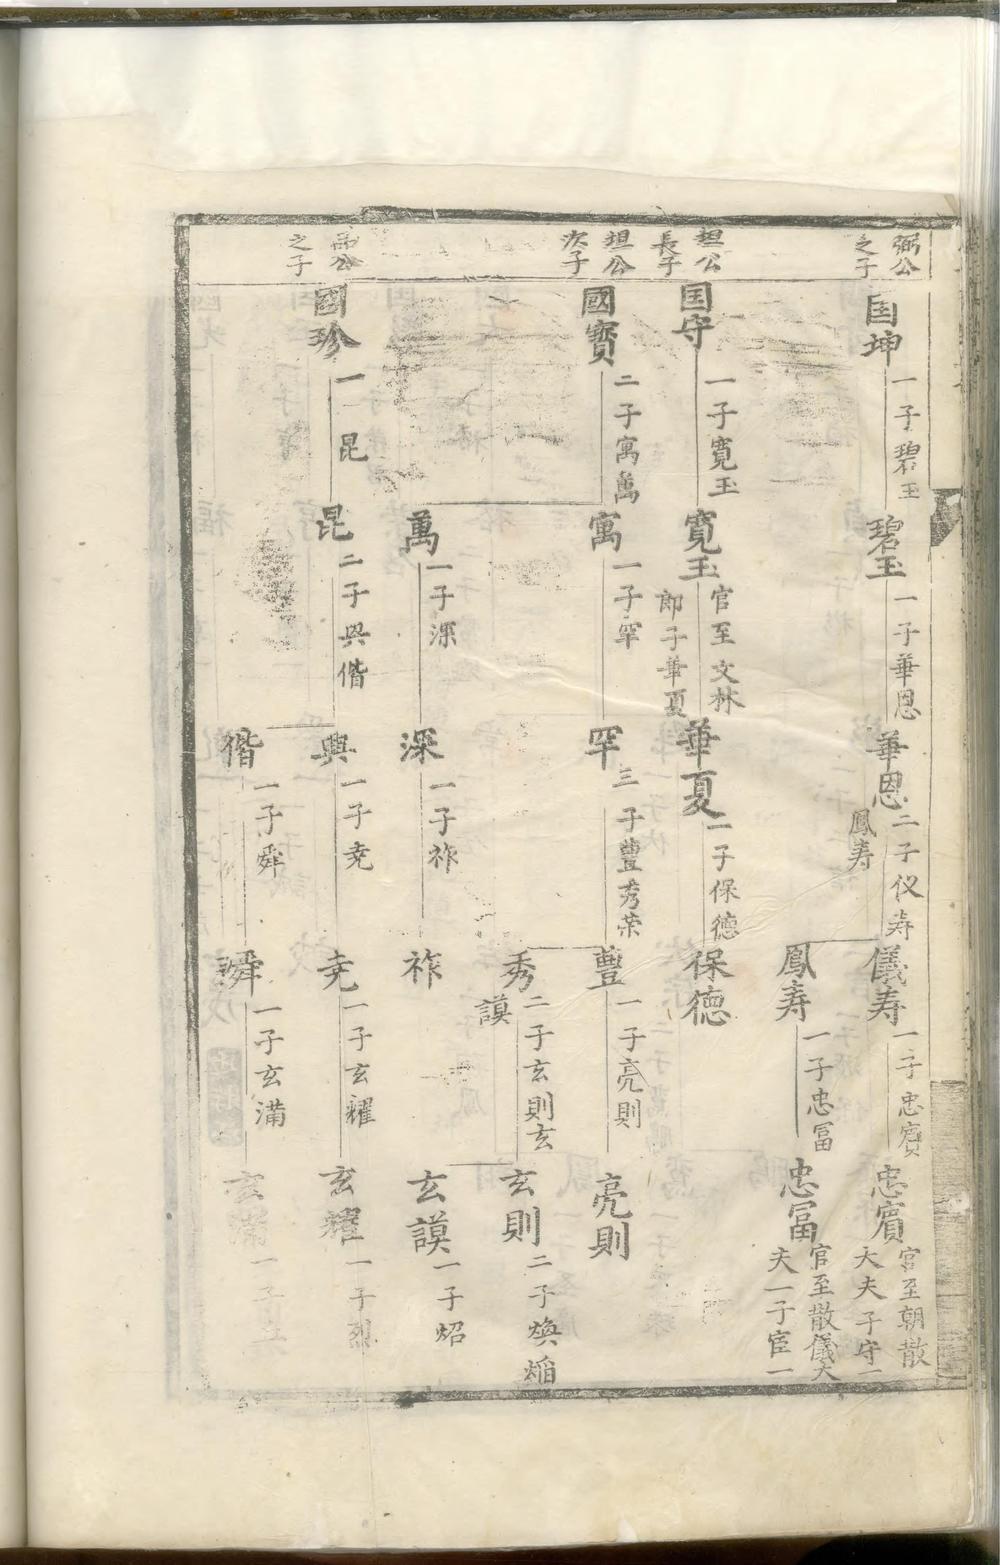 弼公之子
国坤
一子碧玉
碧玉
一子華恩
華恩
二子仪寿
鳳寿
儀寿
一子忠賔
忠賔
官至朝散
大夫子守一
鳳寿
一子忠冨
忠冨
官至散儀大
夫一子宦一
坦公長子
国守
一子寛玉
寛玉
官至文林
郎子華夏
華夏
一子保德
保德
坦公次子
國寳
二子寓萬
寓
一子罕
罕
三子豊秀荣
豊
一子亮則
亮則
秀
二子玄則玄
謨
玄則
二子煥熖
玄謨
一子炤
萬
一子深
深
一子祚
祚
公之子
國珍
一昆
昆
二子興偕
興
一子尭
尭
一子玄耀
玄耀
一子烈
偕
一子舜
舜
一子玄満
玄満
一子